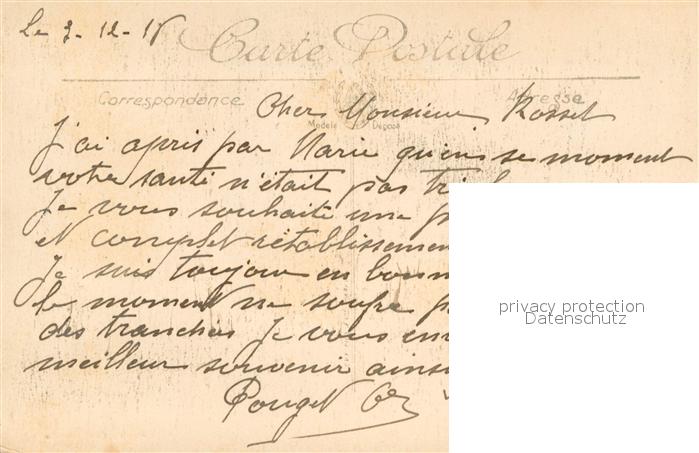 Le 3-12-15
Carte Postale
Correspondance
Adresse
Modèle Déposé
Cher Monsieur Rosset
J'ai apris par Marie qu'en se moment
votre santé n'était pas
Je vous souhaite une
et complet rétablissement
Je suis toujour en bonn
le moment ne soufre
des tranchées Je vous en
meilleur souvenir ainsi
Pouget
privacy protection
Datenschutz